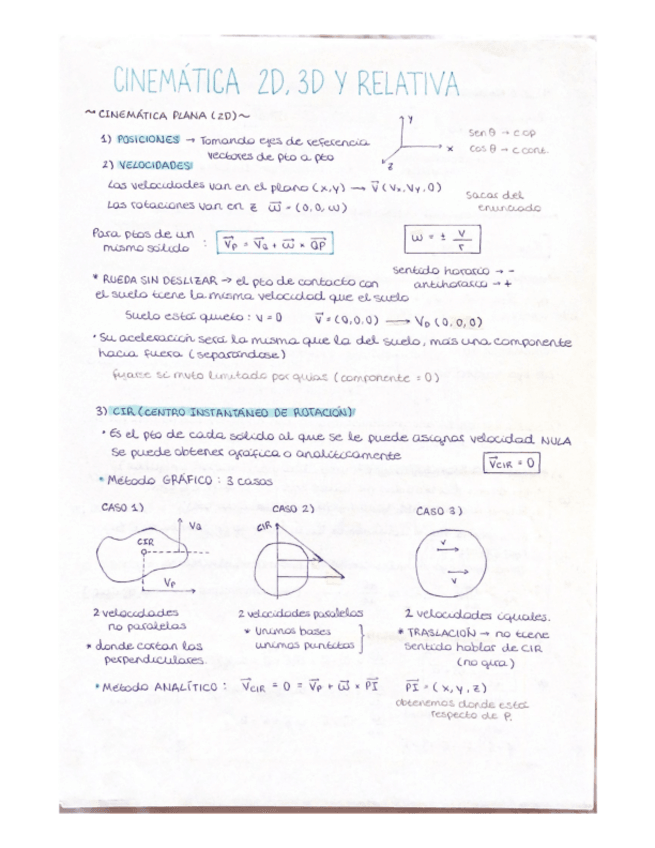 CINEMÁTICA 2D, 3D Y RELATIVA
~ CINEMÁTICA PLANA (2D) ~
1) POSICIONES → Tomando ejes de referencia
vectores de pto a pto
y
x
z
Sen θ → c op
Cos θ → c cont.
2) VELOCIDADES
Las velocidades van en el plano (x,y) → V⃗ (Vx, Vy, 0)
Las rotaciones van en z ω⃗ = (0, 0, ω)
Sacar del
enunciado
Para ptos de un
mismo sólido : V⃗p = V⃗Q + ω⃗ × QP⃗
ω = ± v/r
sentido horario → -
antihorario → +
* RUEDA SIN DESLIZAR → el pto de contacto con
el suelo tiene la misma velocidad que el suelo
Suelo está quieto : v = 0 V⃗ = (0,0,0) → VD (0,0,0)
• Su aceleración será la misma que la del suelo, más una componente
hacia fuera (separándose)
fijarse si mvto limitado por guías (componente = 0)
3) CIR (CENTRO INSTANTÁNEO DE ROTACIÓN)
• Es el pto de cada sólido al que se le puede asignar velocidad NULA
Se puede obtener gráfica o analíticamente
V⃗CIR = 0
• Método GRÁFICO : 3 casos
CASO 1)
CASO 2)
CASO 3)
CIR
VQ
VP
CIR
v
v
2 velocidades
no paralelas
* donde cortan las
perpendiculares.
2 velocidades paralelas
* Unimos bases
unimos puntitas
2 velocidades iguales.
* TRASLACIÓN → no tiene
sentido hablar de CIR
(no gira)
• Método ANALÍTICO : V⃗CIR = 0 = V⃗P + ω⃗ × PI⃗ PI⃗ = (x, y, z)
obtenemos donde está
respecto de P.